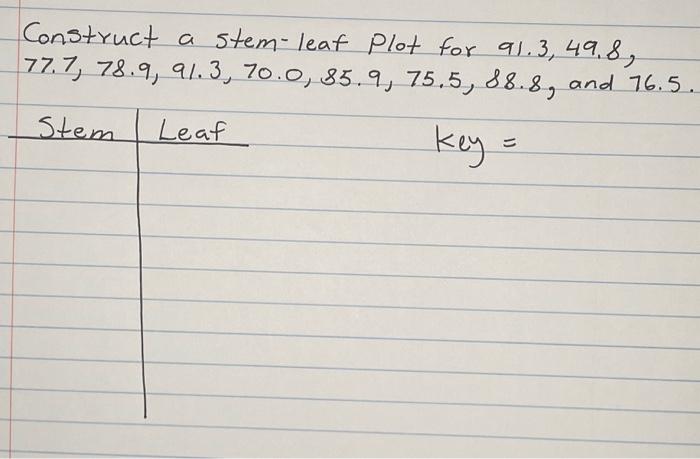 Construct a stem-leaf Plot for 91.3, 49.8,
77.7, 78.9, 91.3, 70.0, 85.9, 75.5, 88.8, and 76.5.
Stem Leaf key =